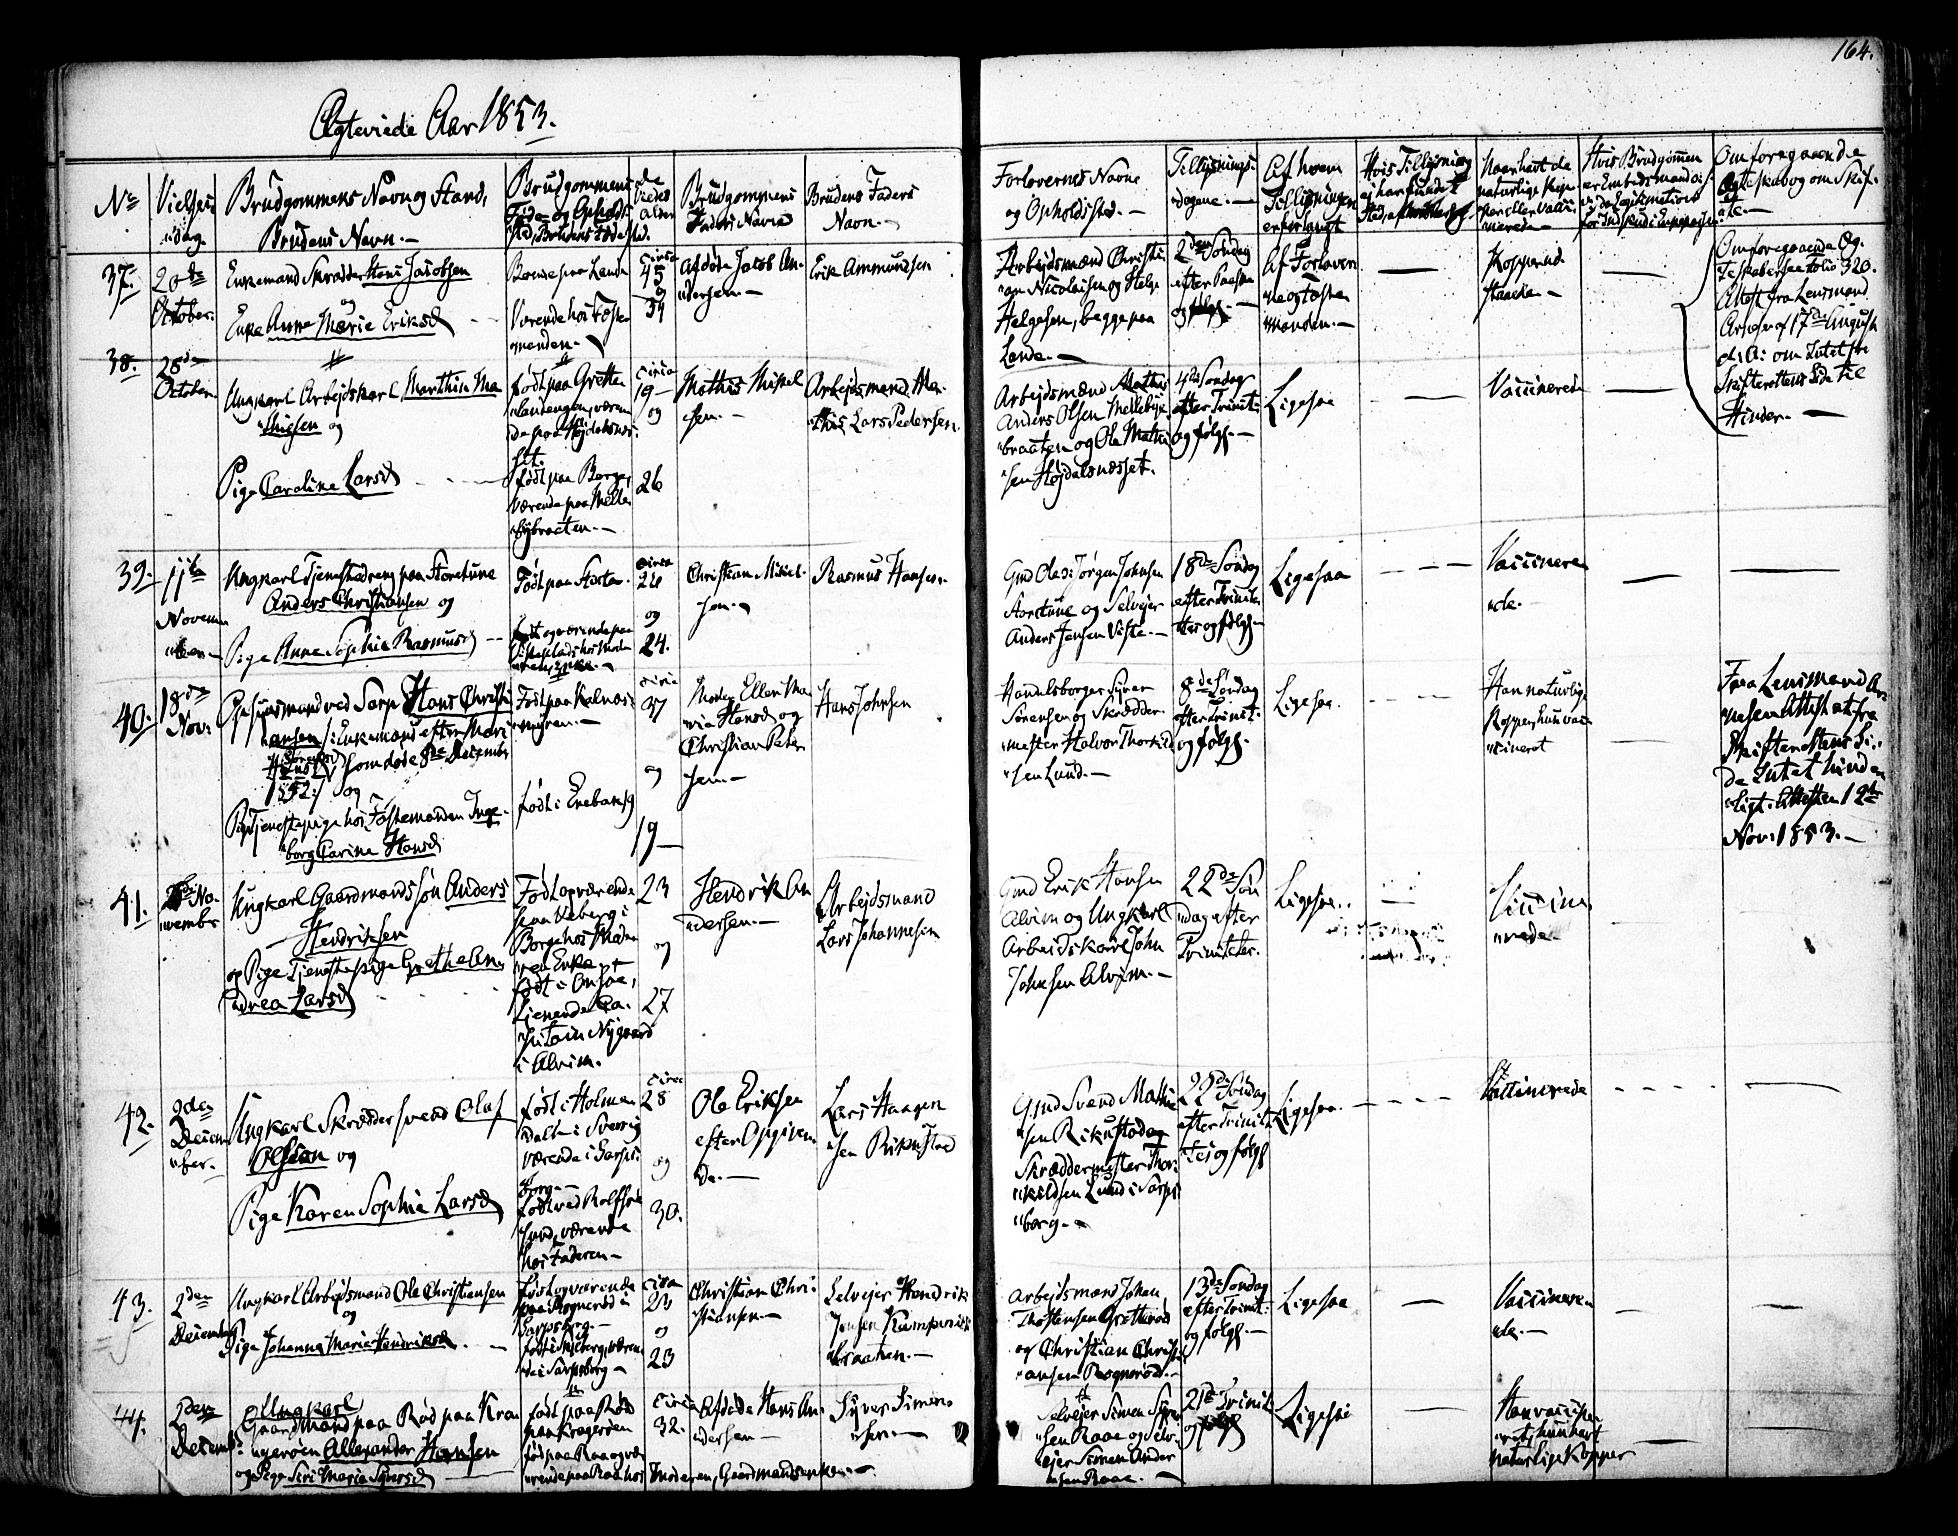 164.
Ægteviede Aar 1853.
No
Vielses-
dag.
Brudgommens Navn og Stand,
Brudens Navn.—
Brudgommens
Føde- og Opholds-
sted, Brudens Fødested.
de
Viedes
Alder
Brudgommens
Faders Navn
Brudens Faders
Navn.—
Forlovernes Navne
og Opholdssted.—
Tillysnings-
dagene.—
Af hvem
Tillysningen
er forlangt
Hvis Tillysning
ej har fundet
Sted,
Naar havt de
naturlige Kop-
per eller vacci-
nerede.—
Hvis Brudgommen
er Embedsmand
Om foregaaende
Ægteskab og om Skif-
te.—
37.
20de
October.
Enkemand Skrædder Hans Jacobsen
og
Enke Anne Marie Eriksd
Boende paa Lande
Værende hos Fæste-
manden.—
circa
45
og
34
Afdøde Jacob An-
dersen.—
Erik Ammundsen
Arbejdsmænd Christi-
an Nicolaisen og Helge
Helgesen, begge paa
Lande.—
2den Søndag
efter Paaske
og følg.—
Af Forlover-
ne og Fæste-
manden.—
—
Koppernd
—
Om foregaaende Æg-
teskaber see Folio 320.
Attest fra Lensmand
Arnesen af 17de August
d: A: om Intet fra
Skifterettens Side til
Hinder.—
38.
28de
October
Ungkarl Arbejdskarl Marthin Ma-
thisen og
Pige Caroline Larsd
født paa Grette-
landengen, væren-
de paa Højdalsnes-
set.
født paa Borge,
værende paa Melle-
bybraaten.—
circa
19—
og
26
Mathis Mikel-
sen.—
Arbejdsmænd Mathis
Anders Olsen Mellebye-
braaten og Ole Mathi-
sen Højdalsnæsset.
4de Søndag
efter Trinit:
og følg.—
Ligesaa
—
Vaccinered
—
39.
11te
Novem-
ber.—
Ungkarl Tjenestedreng paa Aaretune
Anders Christiansen og
Pige Anne Sophie Rasmusd
circa
26
og
24.
Christian Mikel-
sen.—
Rasmus Hansen.
Gmd Jørgen Johnsen
Aaretune og Selvejer
Anders Jensen Viste.—
18de Søndag
efter Trinita-
tis og følg—
Ligesaa
—
Vaccinere-
de.—
—
—
40.
18de
Nov:
Opsynsmand ved Sarp Hans Christi-
ansen /: Enkemand efter Mari
som døde 8de December
1852:/ og
Pige Tjenestepige hos Fæstemanden Inge-
borg Carine Hansd
født i Enebak
circa
37
og
19—
Moder Ellen Ma-
ria Hansd og
Christian Peter-
sen.—
Hans Johnsen
Handelsborger Syver
Sørensen og Skrædder-
mester Halvor Thorkild-
sen Lund.—
8de Søndag
efter Trinit:
og følg.
Ligesaa.
Han naturlige
Kopper, hun vac-
cineret
—
Fra Lensmand Ar-
nesen Attest at fra
Skifterettens Si-
de Intet hinder-
ligt. Attesten 12te
Nov: 1853.—
41.
No-
vember
Ungkarl Gaardmandssøn Anders
Hendriksen
og Pige Tjenestepige Grethe Lin
Andrea Larsd
Født og værende
paa Veberg i
Borge hos Mode-
ren Enke
født i Onsøe,
tjenende Ca-
pitain Nygaard
i Alvim.
23
og
27
Hendrik An-
dersen—
Arbejdsmand
Lars Johannesen
Gmd Erik Hansen
Alvim og Ungkarl
Arbeidskarl John
Johnsen Alvim.—
22de Søn-
dag efter
Trinitatis.
Ligesaa.
Vaccine-
rede.
42.
2den
Decem-
ber.—
Ungkarl Skrædder Svend Olaf
Olsson og
Pige Karen Sophie Larsd
født i Holmen
Dalh i Sverrig
værende i Sarps-
borg.—
født ved Rolfsøe-
sund, værende
hos Faderen—
circa
28
og
30.
Ole Eriksen
efter Opgiven-
de.—
Lars Haagen-
sen
Gmd Svend Mathi-
sen Rikustad og
Skræddermester Thor-
kildsen Lund i Sarps-
borg.—
22de Søndag
efter Trinita-
tis og følg
Ligesaa.
Vaccinerede
—
43.
2den
December
Ungkarl Arbejdsmand Ole Christiansen
og
Pige Johanna Marie Hendriksd
Født og værende
paa Rognerød i
Sarpsborg.—
circa
23
og
23
Christian Chri-
stiansen.—
Selvejer Hendrik
Jensen Kamperud-
braaten.—
Arbejdsmænd Johan
Thostensen Grotterød
og Christian Christi-
ansen Rognerød.—
13de Søndag
efter Trinit:
og følg.—
Ligesaa
—
Vaccinere-
de.—
—
—
44.
2den
Decemb:
Ungkarl
Gaardmand paa Rød paa Kra-
gerøen Allexander Hansen
og Pige Siri Marie Syversd
født paa Rød
paa Kragerøen
født paa Raae og vær-
ende paa Raa hos Moderen, Gaardmandsenke.—
circa
32.
Afdøde Hans An-
dersen—
Syver Simen-
sen—
Selvejer Simen Syver-
sen Raae og Selv-
ejer Simen Ander-
sen Raae.—
21de Trinit:
og følg
Ligesaa
—
Han vaccine-
ret, hun havt
naturlige Kopper
—
—